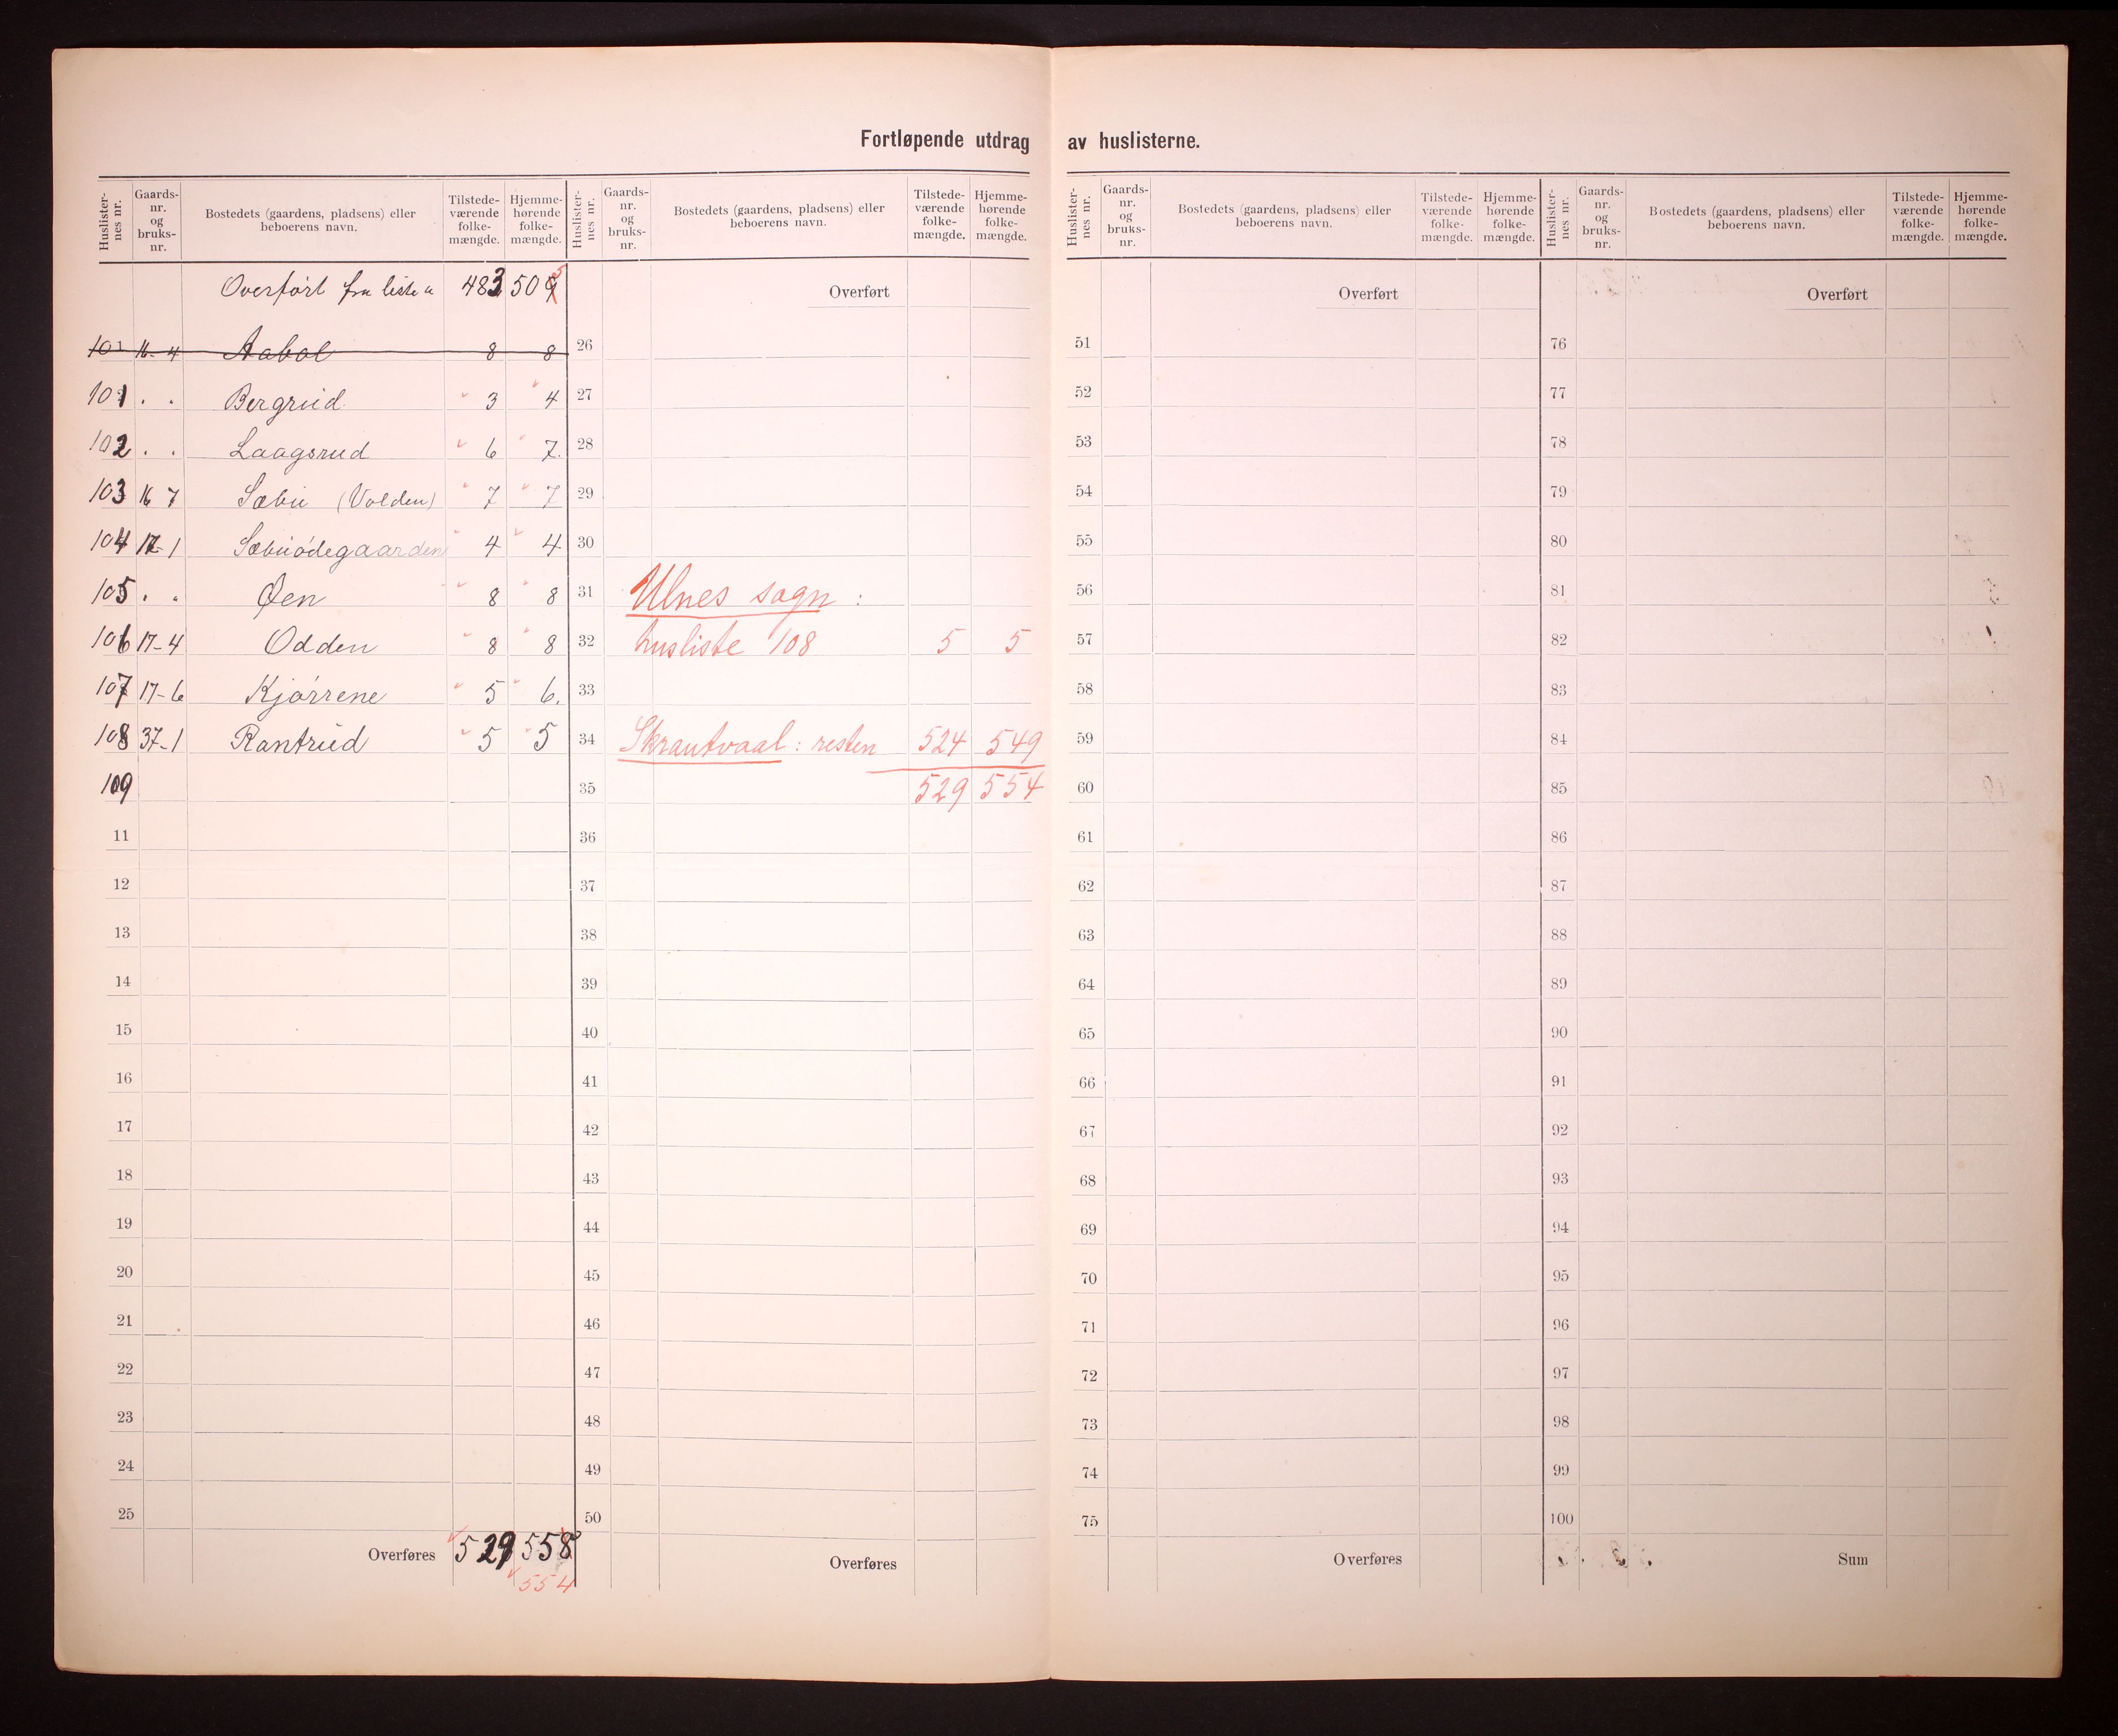 Fortløpende utdrag av huslisterne.
Huslister-nes nr. Gaards-nr. og bruks-nr. Bostedets (gaardens, pladsens) eller beboerens navn. Tilstede-værende folke-mængde. Hjemme-hørende folke-mængde.
Overført fra liste 483 509 5
101 16-4 Aabol 8 8
101 . . Bergrud 3 4
102 . . Laagsrud 6 7.
103 16 7 Sæbu (Volden) 7 7
104 17-1 Sæbuødegaarden 4 4
105 . . Øen 8 8
106 17-4 Odden 8 8
107 17-6 Kjørrene 5 6.
108 37-1 Rantrud 5 5
109
11
12
13
14
15
16
17
18
19
20
21
22
23
24
25
Overføres 529 558
554
Huslister-nes nr. Gaards-nr. og bruks-nr. Bostedets (gaardens, pladsens) eller beboerens navn. Tilstede-værende folke-mængde. Hjemme-hørende folke-mængde.
Overført
26
27
28
29
30
31 Ulnes sogn :
32 husliste 108 5 5
33
34 Skrautvaal : resten 524 549
35 529 554
36
37
38
39
40
41
42
43
44
45
46
47
48
49
50
Overføres
Huslister-nes nr. Gaards-nr. og bruks-nr. Bostedets (gaardens, pladsens) eller beboerens navn. Tilstede-værende folke-mængde. Hjemme-hørende folke-mængde.
Overført
51
52
53
54
55
56
57
58
59
60
61
62
63
64
65
66
67
68
69
70
71
72
73
74
75
Overføres
Huslister-nes nr. Gaards-nr. og bruks-nr. Bostedets (gaardens, pladsens) eller beboerens navn. Tilstede-værende folke-mængde. Hjemme-hørende folke-mængde.
Overført
76
77
78
79
80
81
82
83
84
85
86
87
88
89
90
91
92
93
94
95
96
97
98
99
100
Sum